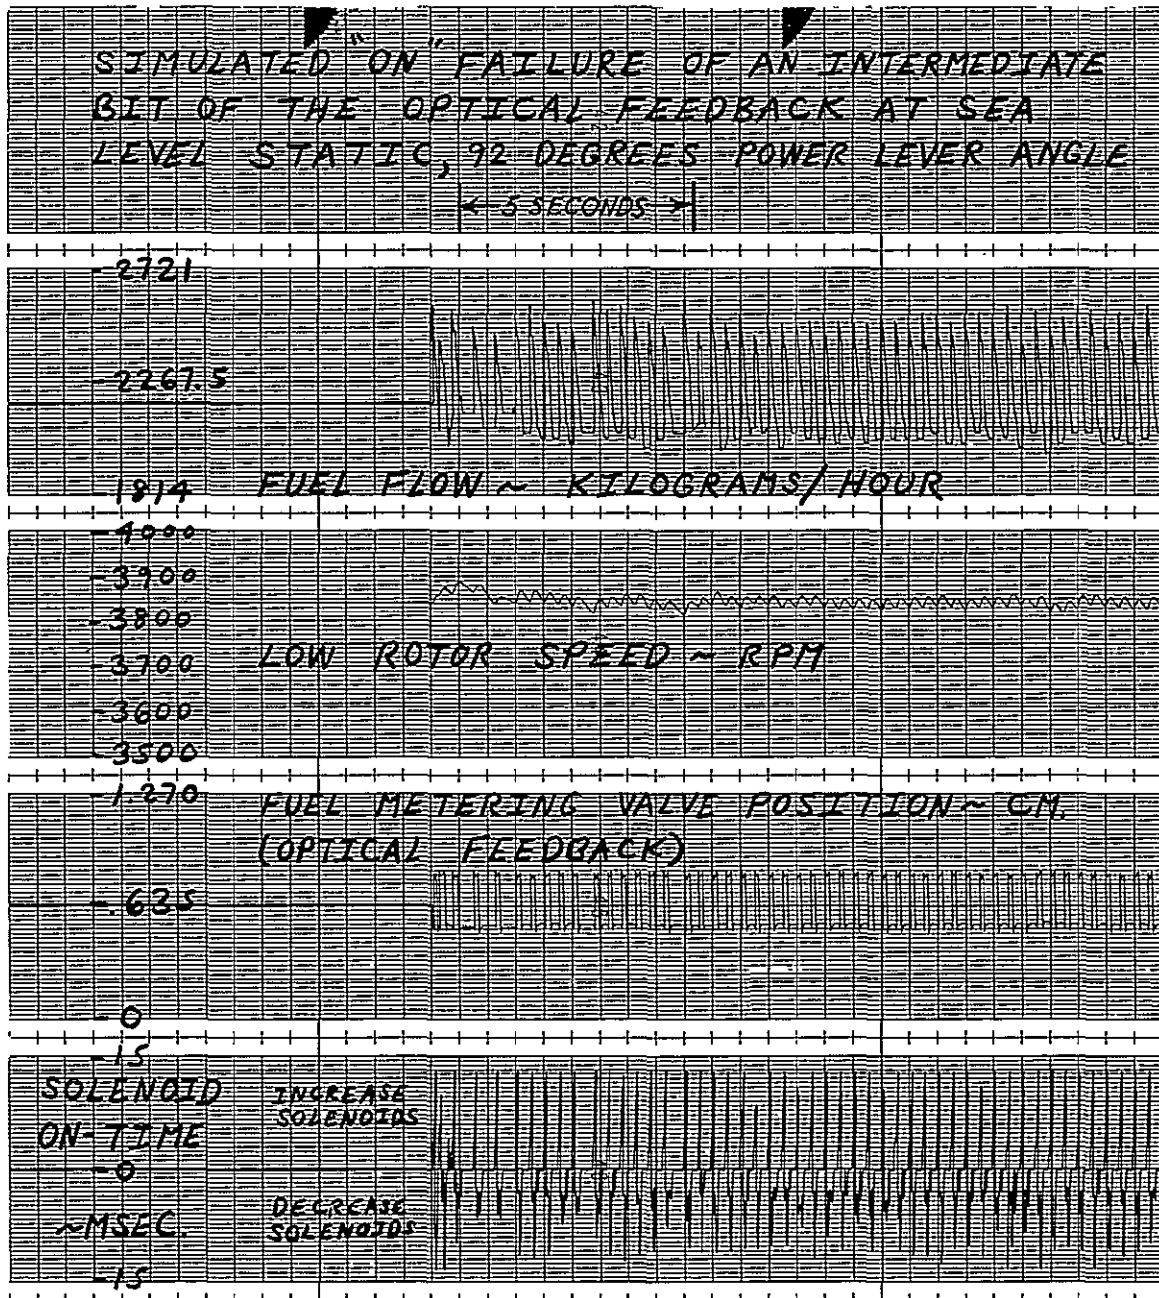 SIMULATED "ON" FAILURE OF AN INTERMEDIATE
BIT OF THE OPTICAL FEEDBACK AT SEA
LEVEL STATIC, 92 DEGREES POWER LEVER ANGLE
5 SECONDS
-2721
-2267.5
-1814
FUEL FLOW ~ KILOGRAMS/HOUR
-4000
-3900
-3800
-3700
LOW ROTOR SPEED ~ RPM
-3600
-3500
-1.270
FUEL METERING VALVE POSITION ~ CM.
(OPTICAL FEEDBACK)
-.635
-0
-15
SOLENOID
ON-TIME
-0
~MSEC.
-15
INCREASE
SOLENOIDS
DECREASE
SOLENOIDS